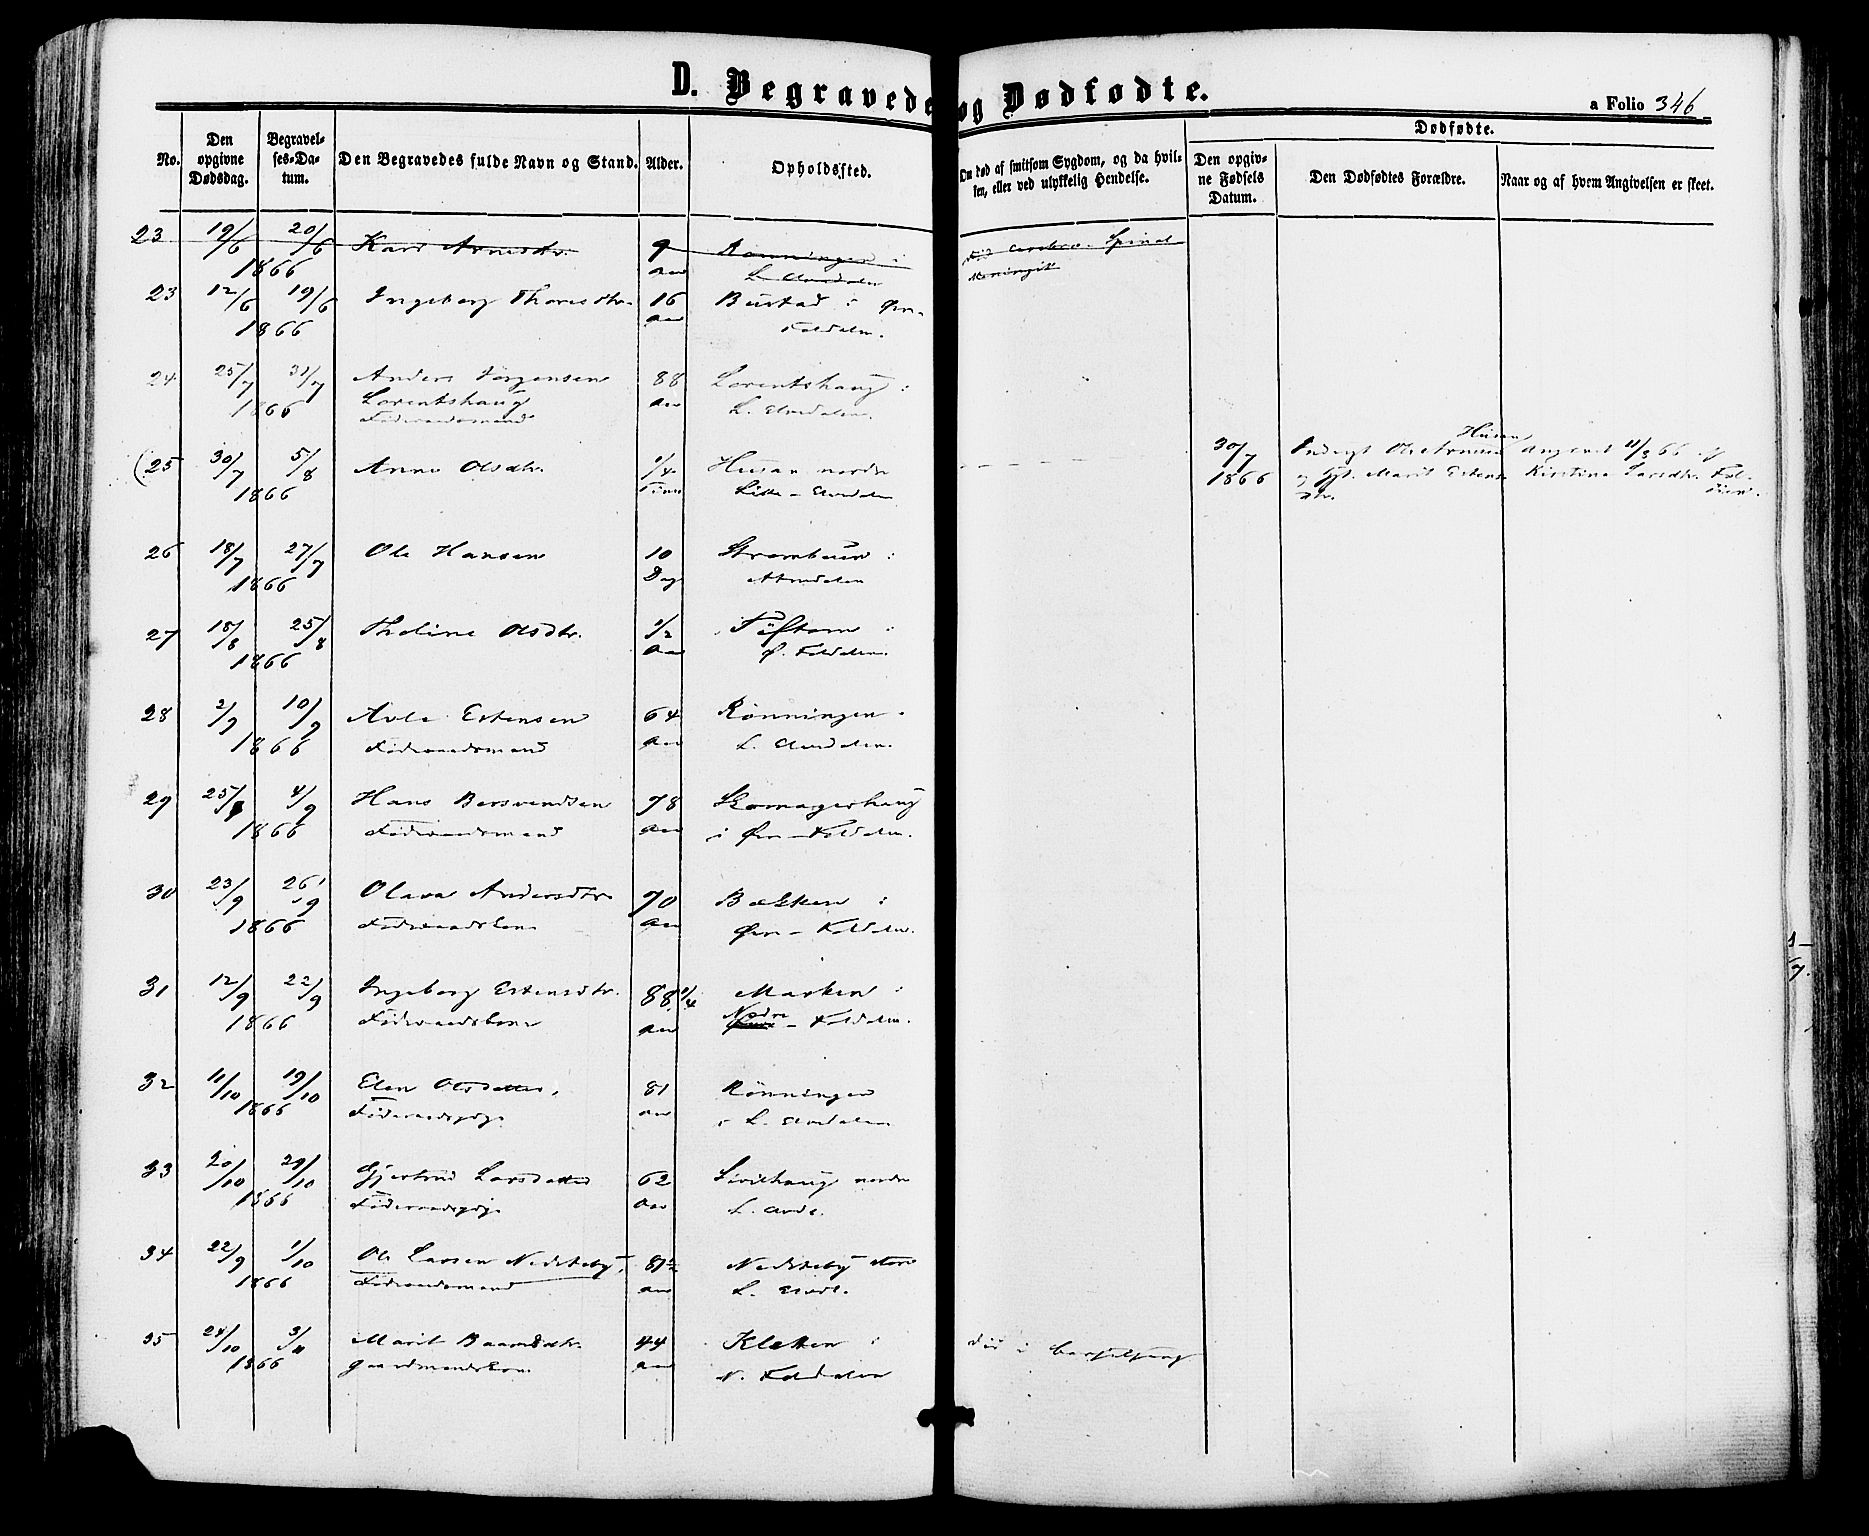 D. Begravede og Dødfødte.
a Folio 346
No.
Den opgivne Dødsdag.
Begravelses-Datum.
Den Begravedes fulde Navn og Stand.
Alder.
Opholdssted.
Om død af smitsom Sygdom, og da hvilken, eller ved ulykkelig Hendelse.
Dødfødte.
Den opgivne Fødsels Datum.
Den Dødfødtes Forældre.
Naar og af hvem Angivelsen er skeet.
23 19/6 20/6 Kari Arnesdtr. 9 Rønningen i
1866 Aar L. Elvedalen
23 12/6 19/6 Ingeborg Thoresdtr. 16 Bustad i Øvre
1866 Aar Foldalen.
24 25/7 31/7 Anders Jørgensen 88 Lorentshaug i
1866 Lorentshaug Aar L. Elvedalen.
Føderaadsmand
25 30/7 5/8 Anne Olsdtr. 1/4 Husan nordre 30/7 Husan
1866 Time Lille-Elvedalen 1866 og Marit Estens- Kirstine Larsdtr.
dtr.
26 18/7 27/7 Ole Hansen 10 Strømbuen i
1866 Dag Atnedalen
27 18/8 25/8 Thaline Olsdtr. 1/2
1866 Aar Ø. Foldalen.
28 2/9 10/9 Estensen 64 Rønningen
1866 Føderaadsmand Aar L. Elvedalen.
29 25/8 4/9 Hans Bersvendsen 78 Skomagerhaug
1866 Føderaadsmand Aar i Øvre-Foldalen.
30 23/9 26/9 Olava Andersdtr. 70 Bækken i
1866 Føderaadskone Aar Øvre-Foldalen.
31 12/9 22/9 Ingeborg Estensdtr. 88 1/4 Mosken i
1866 Føderaadskone Aar Nedre-Foldalen.
32 11/10 19/10 Elen Olsdatter, 81 Rønningen
1866 Føderaadspige Aar i L. Elvedalen
33 20/10 29/10 Gjertrud Larsdatter 62 nordre
1866 Føderaadspige Aar L. Elvd.
34 22/9 1/10 Ole Larsen Nedsteby, 81 Nedsteby store
1866 Føderaadsmand Aar L. Elvdl.
35 24/10 3/11 Marit Baardsdtr. 44 Kletten i Død i barselseng
1866 gaardmandskone Aar N. Foldalen